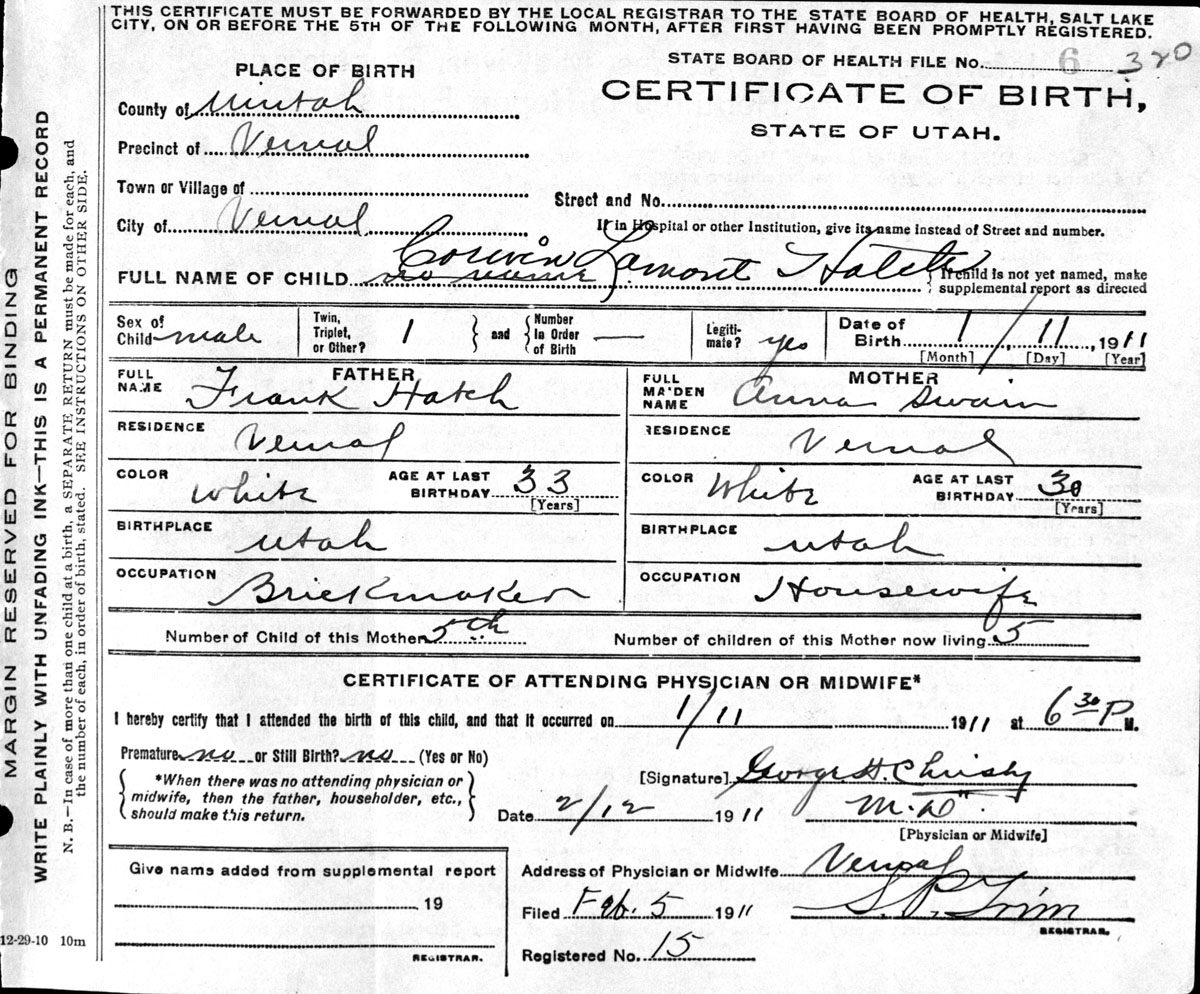 THIS CERTIFICATE MUST BE FORWARDED BY THE LOCAL REGISTRAR TO THE STATE BOARD OF HEALTH, SALT LAKE
CITY, ON OR BEFORE THE 5TH OF THE FOLLOWING MONTH, AFTER FIRST HAVING BEEN PROMPTLY REGISTERED.
STATE BOARD OF HEALTH FILE No. 6 320
PLACE OF BIRTH
CERTIFICATE OF BIRTH,
STATE OF UTAH.
County of Uintah
Precinct of Vernal
Town or Village of
Street and No.
City of Vernal
If in Hospital or other Institution, give its name instead of Street and number.
FULL NAME OF CHILD no name Corwin Lamont Hatch
If child is not yet named, make
supplemental report as directed
Sex of Child male
Twin, Triplet, or Other? 1
and
Number In Order of Birth —
Legiti-mate? yes
Date of Birth 1/11, 1911
[Month] [Day] [Year]
FATHER
FULL NAME Frank Hatch
MOTHER
FULL MAIDEN NAME Anna Swain
RESIDENCE Vernal
RESIDENCE Vernal
COLOR White AGE AT LAST BIRTHDAY 33 [Years]
COLOR White AGE AT LAST BIRTHDAY 30 [Years]
BIRTHPLACE Utah
BIRTHPLACE Utah
OCCUPATION Brickmaker
OCCUPATION Housewife
Number of Child of this Mother 5th Number of children of this Mother now living 5
CERTIFICATE OF ATTENDING PHYSICIAN OR MIDWIFE*
I hereby certify that I attended the birth of this child, and that it occurred on 1/11 1911 at 6 30 P M.
Premature no or Still Birth? no (Yes or No)
*When there was no attending physician or
midwife, then the father, householder, etc.,
should make this return.
[Signature] George H. Christy
Date 2/12 1911 M.D.
[Physician or Midwife]
Give name added from supplemental report
19
REGISTRAR.
Address of Physician or Midwife Vernal
Filed Feb. 5 1911 S. P.
REGISTRAR.
Registered No. 15
12-29-10 10m
MARGIN RESERVED FOR BINDING
WRITE PLAINLY WITH UNFADING INK—THIS IS A PERMANENT RECORD
N. B.—In case of more than one child at a birth, a SEPARATE RETURN must be made for each, and
the number of each, in order of birth, stated. SEE INSTRUCTIONS ON OTHER SIDE.